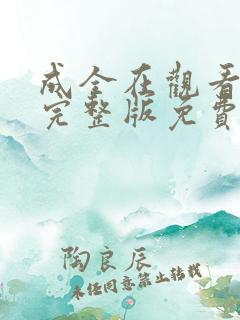 成全在觀看
完整版免費
陶良辰
未经同意禁止转载